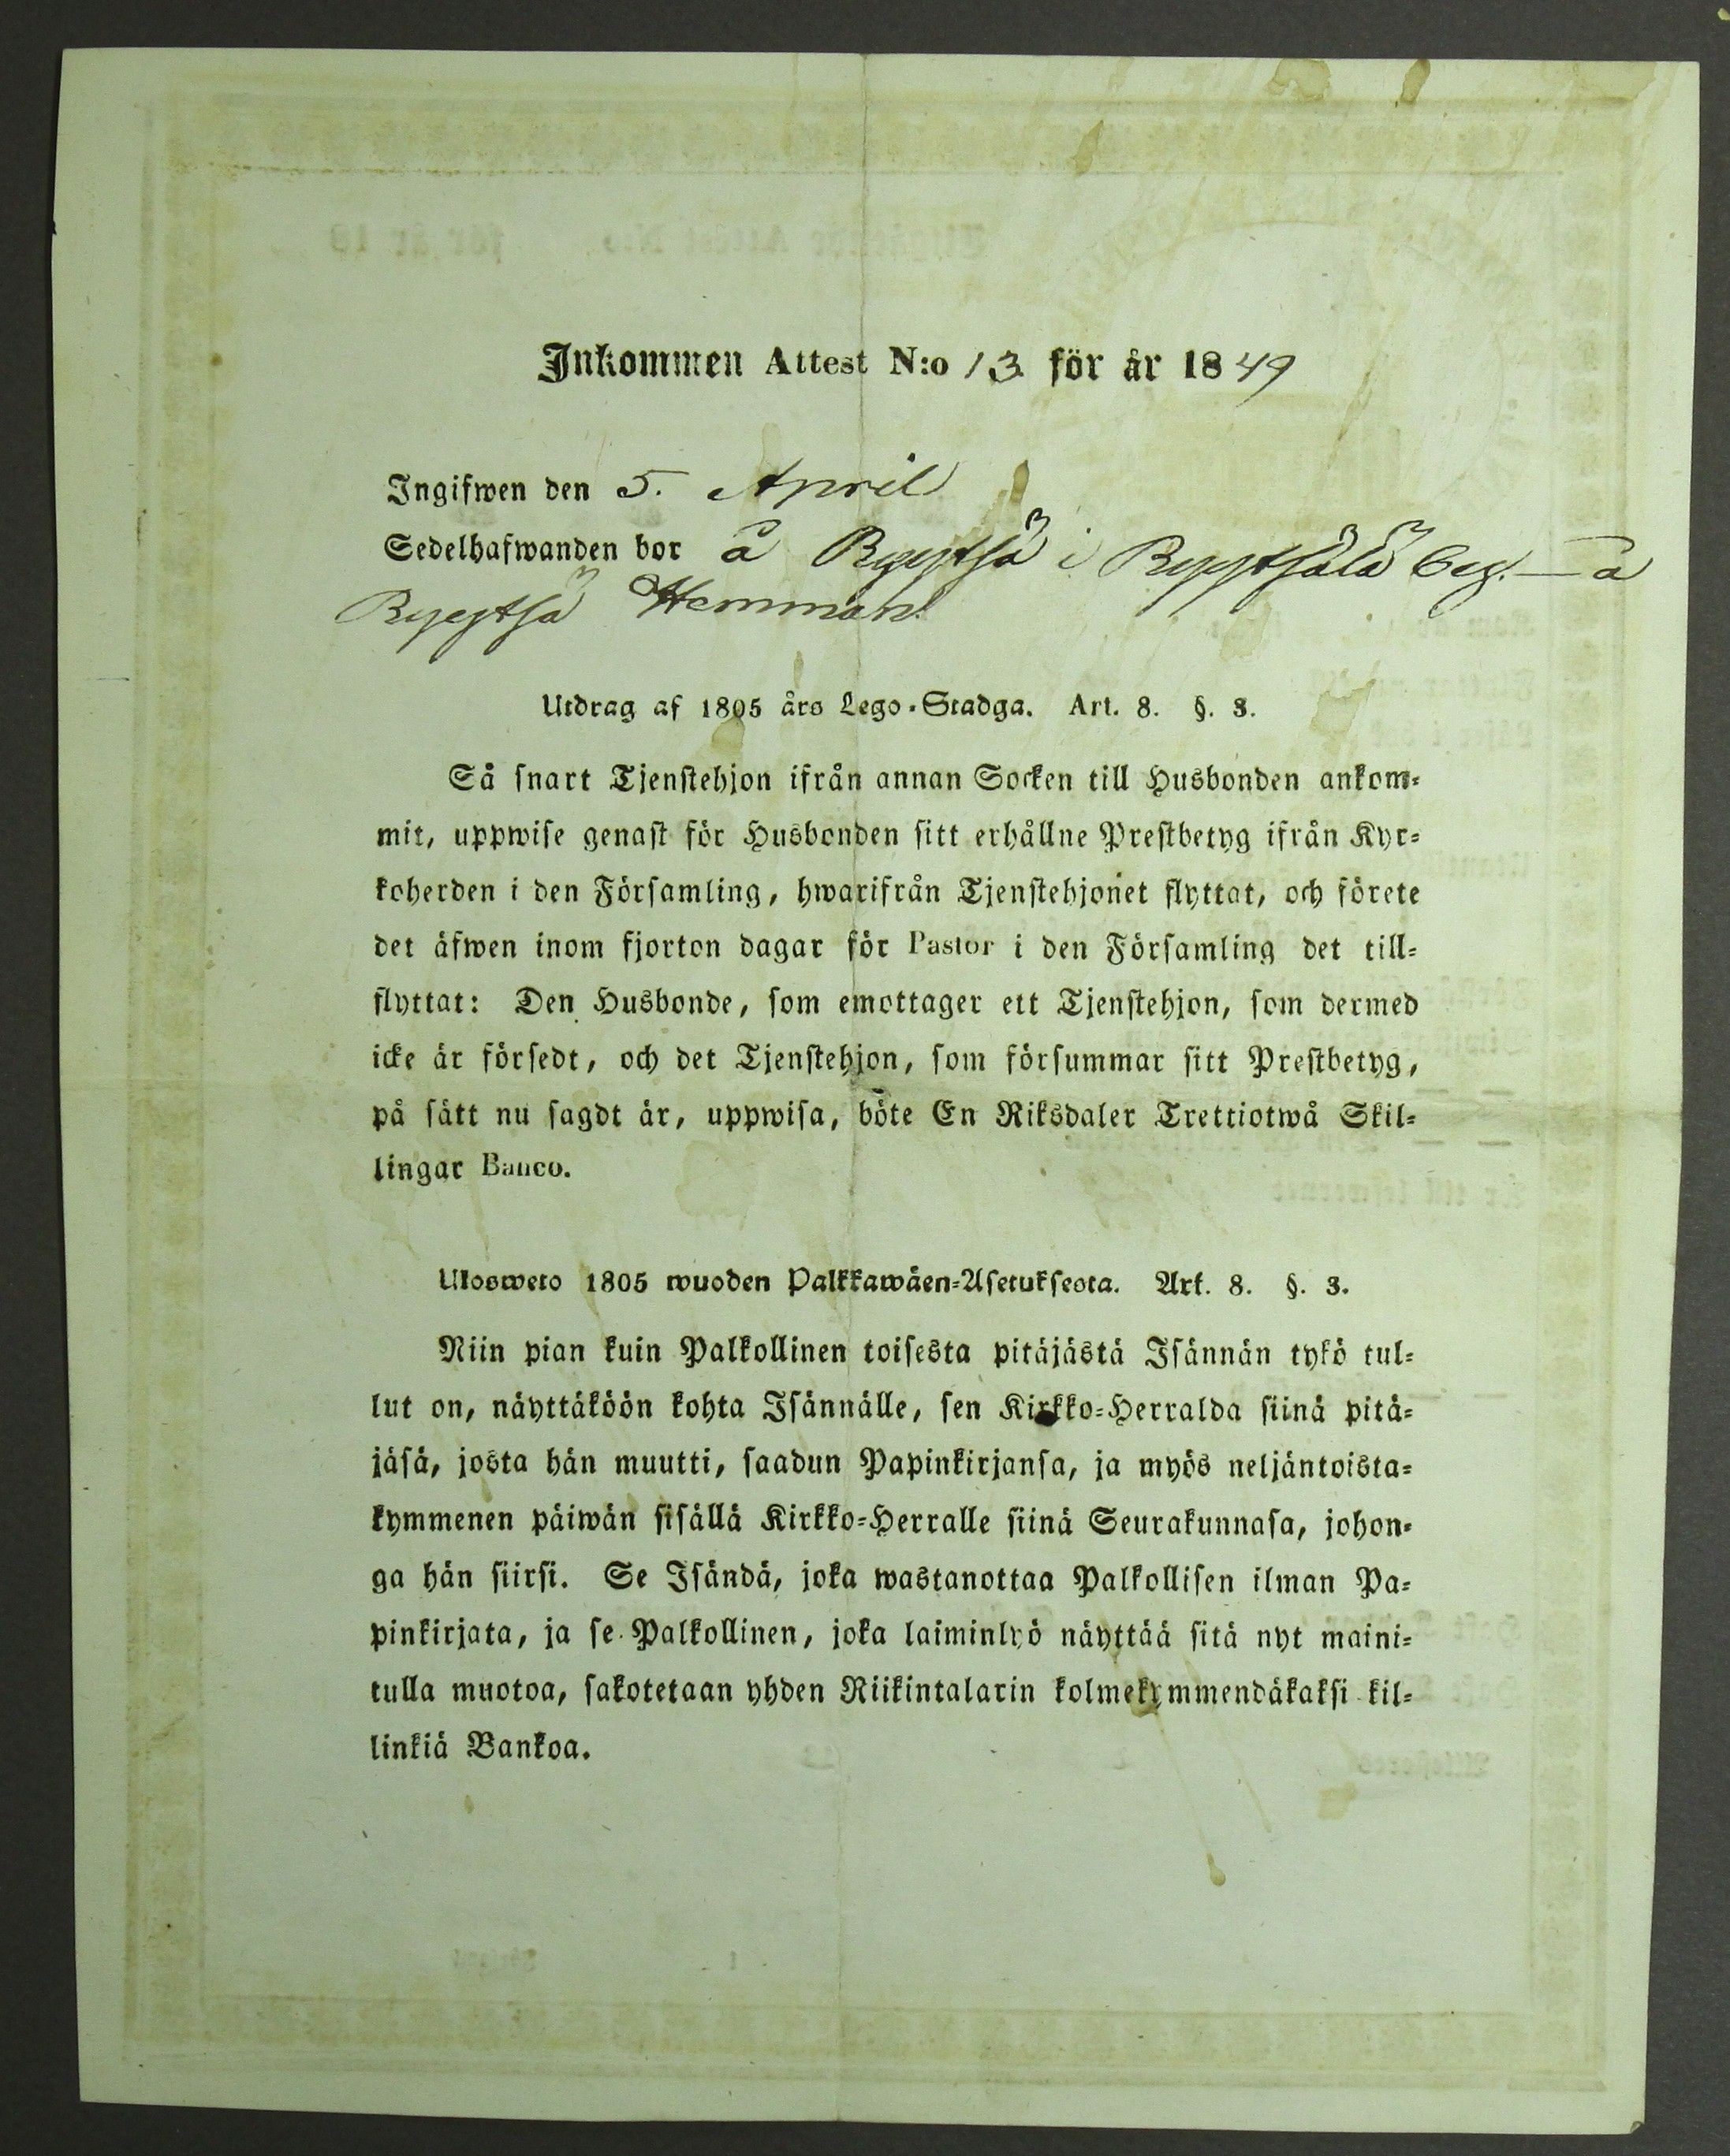 Inkommen Attest N:o 13 för år 1849
Ingifwen den 5. April
Sedelhafwanden bor å i
Hemman
Utdrag af 1805 års Lego-Stadga. Art. 8. §. 3.
Så snart Tjenstehjon ifrån annan Socken till Husbonden ankom-
mit, uppwise genast för Husbonden sitt erhållne Prestbetyg ifrån Kyr-
koherden i den Församling, hwarifrån Tjenstehjonet flyttat, och förete
det äfwen inom fjorton dagar för Pastor i den Församling det till-
flyttat: Den Husbonde, som emottager ett Tjenstehjon, som dermed
icke är försedt, och det Tjenstehjon, som försummar sitt Prestbetyg,
på sätt nu sagdt är, uppwisa, böte En Riksdaler Trettiotwå Skil-
lingar Banco.
Ulosweto 1805 wuoden Palkkawäen-Asetuksesta. Art. 8. §. 3.
Niin pian kuin Palkollinen toisesta pitäjästä Isännän tykö tul-
lut on, näyttäköön kohta Isännälle, sen Kirkko-Herralda siinä pitä-
jäsä, josta hän muutti, saadun Papinkirjansa, ja myös neljäntoista-
kymmenen päiwän sisällä Kirkko-Herralle siinä Seurakunnasa, johon-
ga hän siirsi. Se Isändä, joka wastanottaa Palkollisen ilman Pa-
pinkirjata, ja se Palkollinen, joka laiminlyö näyttää sitä nyt maini-
tulla muotoa, sakotetaan yhden Riikintalarin kolmekymmendäkaksi kil-
linkiä Bankoa.